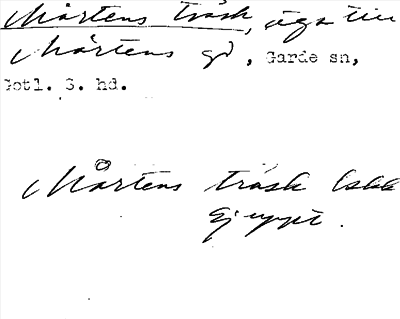 Mårtens träsk, äga till
Mårtens gd, Garde sn,
Gotl. S. hd.
Mårtens träsk
Ej uppt.